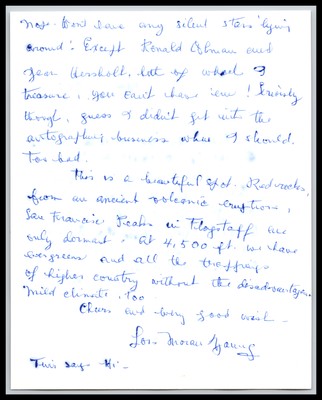 now. Don't have any silent stars lying
around! Except Ronald Colman and
Jean Hersholt, both of whom I
treasure, you can't have 'em! Seriously
though, guess I didn't get into the
autographing business when I should.
Too bad.
This is a beautiful spot. Red rocks,
from an ancient volcanic eruption,
San Francisco Peaks in Flagstaff are
only dormant. At 4,500 ft. we have
evergreens and all the trappings
of higher country without the disadvantages.
Mild climate, too.
Cheers and very good wishes -
Lois Moran Young
Tim says Hi -